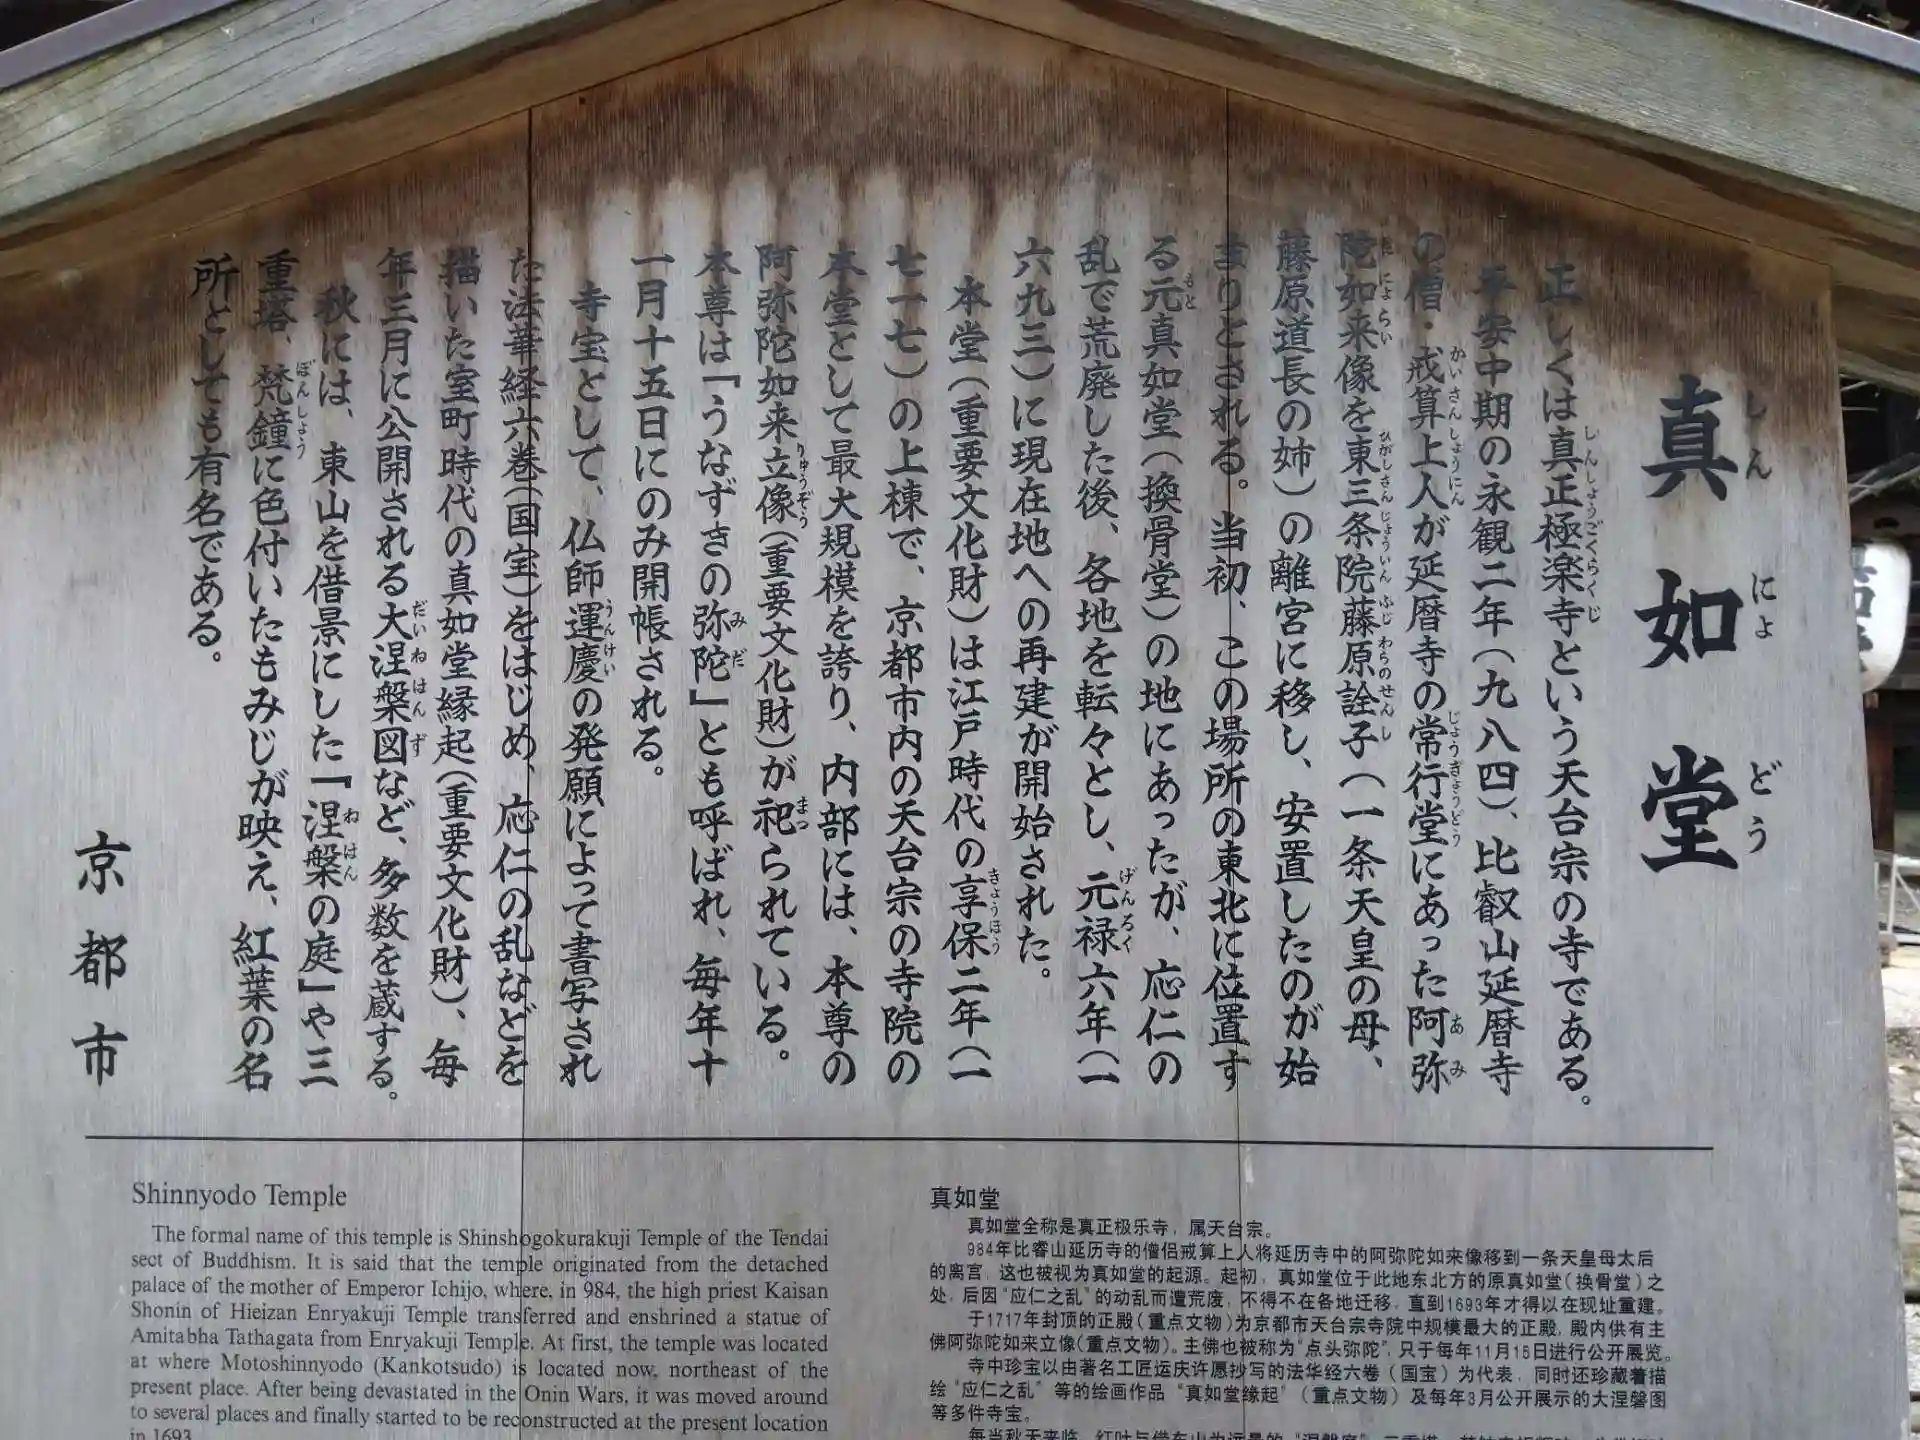 真如堂
しんにょどう
正しくは真正極楽寺という天台宗の寺である。
平安中期の永観二年（九八四）、比叡山延暦寺
の僧・戒算上人が延暦寺の常行堂にあった阿弥
陀如来像を東三条院藤原詮子（一条天皇の母、
藤原道長の姉）の離宮に移し、安置したのが始
まりとされる。当初、この場所の東北に位置す
る元真如堂（換骨堂）の地にあったが、応仁の
乱で荒廃した後、各地を転々とし、元禄六年（一
六九三）に現在地への再建が開始された。
本堂（重要文化財）は江戸時代の享保二年（一
七一七）の上棟で、京都市内の天台宗の寺院の
本堂として最大規模を誇り、内部には、本尊の
阿弥陀如来立像（重要文化財）が祀られている。
本尊は「うなずきの弥陀」とも呼ばれ、毎年十
一月十五日にのみ開帳される。
寺宝として、仏師運慶の発願によって書写され
た法華経六巻（国宝）をはじめ、応仁の乱などを
描いた室町時代の真如堂縁起（重要文化財）、毎
年三月に公開される大涅槃図など、多数を蔵する。
秋には、東山を借景にした『涅槃の庭』や三
重塔、梵鐘に色付いたもみじが映え、紅葉の名
所としても有名である。
京都市
Shinnyodo Temple
The formal name of this temple is Shinshogokurakuji Temple of the Tendai
sect of Buddhism. It is said that the temple originated from the detached
palace of the mother of Emperor Ichijo, where, in 984, the high priest Kaisan
Shonin of Hieizan Enryakuji Temple transferred and enshrined a statue of
Amitabha Tathagata from Enryakuji Temple. At first, the temple was located
at where Motoshinnyodo (Kankotsudo) is located now, northeast of the
present place. After being devastated in the Onin Wars, it was moved around
to several places and finally started to be reconstructed at the present location
in 1693.
真如堂
真如堂全称是真正极乐寺，属天台宗。
984年比睿山延历寺的僧侣戒算上人将延历寺中的阿弥陀如来像移到一条天皇母太后
的离宫，这也被视为真如堂的起源。起初，真如堂位于此地东北方的原真如堂（换骨堂）之
处，后因“应仁之乱”的动乱而遭荒废，不得不在各地迁移，直到1693年才得以在现址重建。
于1717年封顶的正殿（重点文物）为京都市天台宗寺院中规模最大的正殿，殿内供有主
佛阿弥陀如来立像（重点文物）。主佛也被称为“点头弥陀”，只于每年11月15日进行公开展览。
寺中珍宝以由著名工匠运庆许愿抄写的法华经六卷（国宝）为代表，同时还珍藏着描
绘“应仁之乱”等的绘画作品“真如堂缘起”（重点文物）及每年3月公开展示的大涅磐图
等多件寺宝。